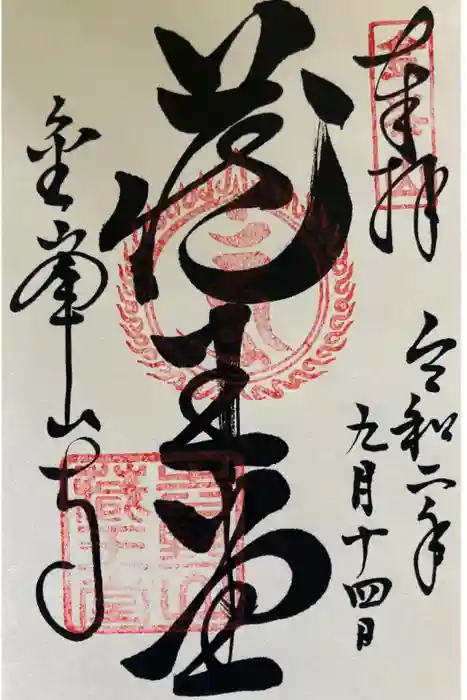 奉拝
令和二年
九月十四日
蔵王堂
金峯山寺